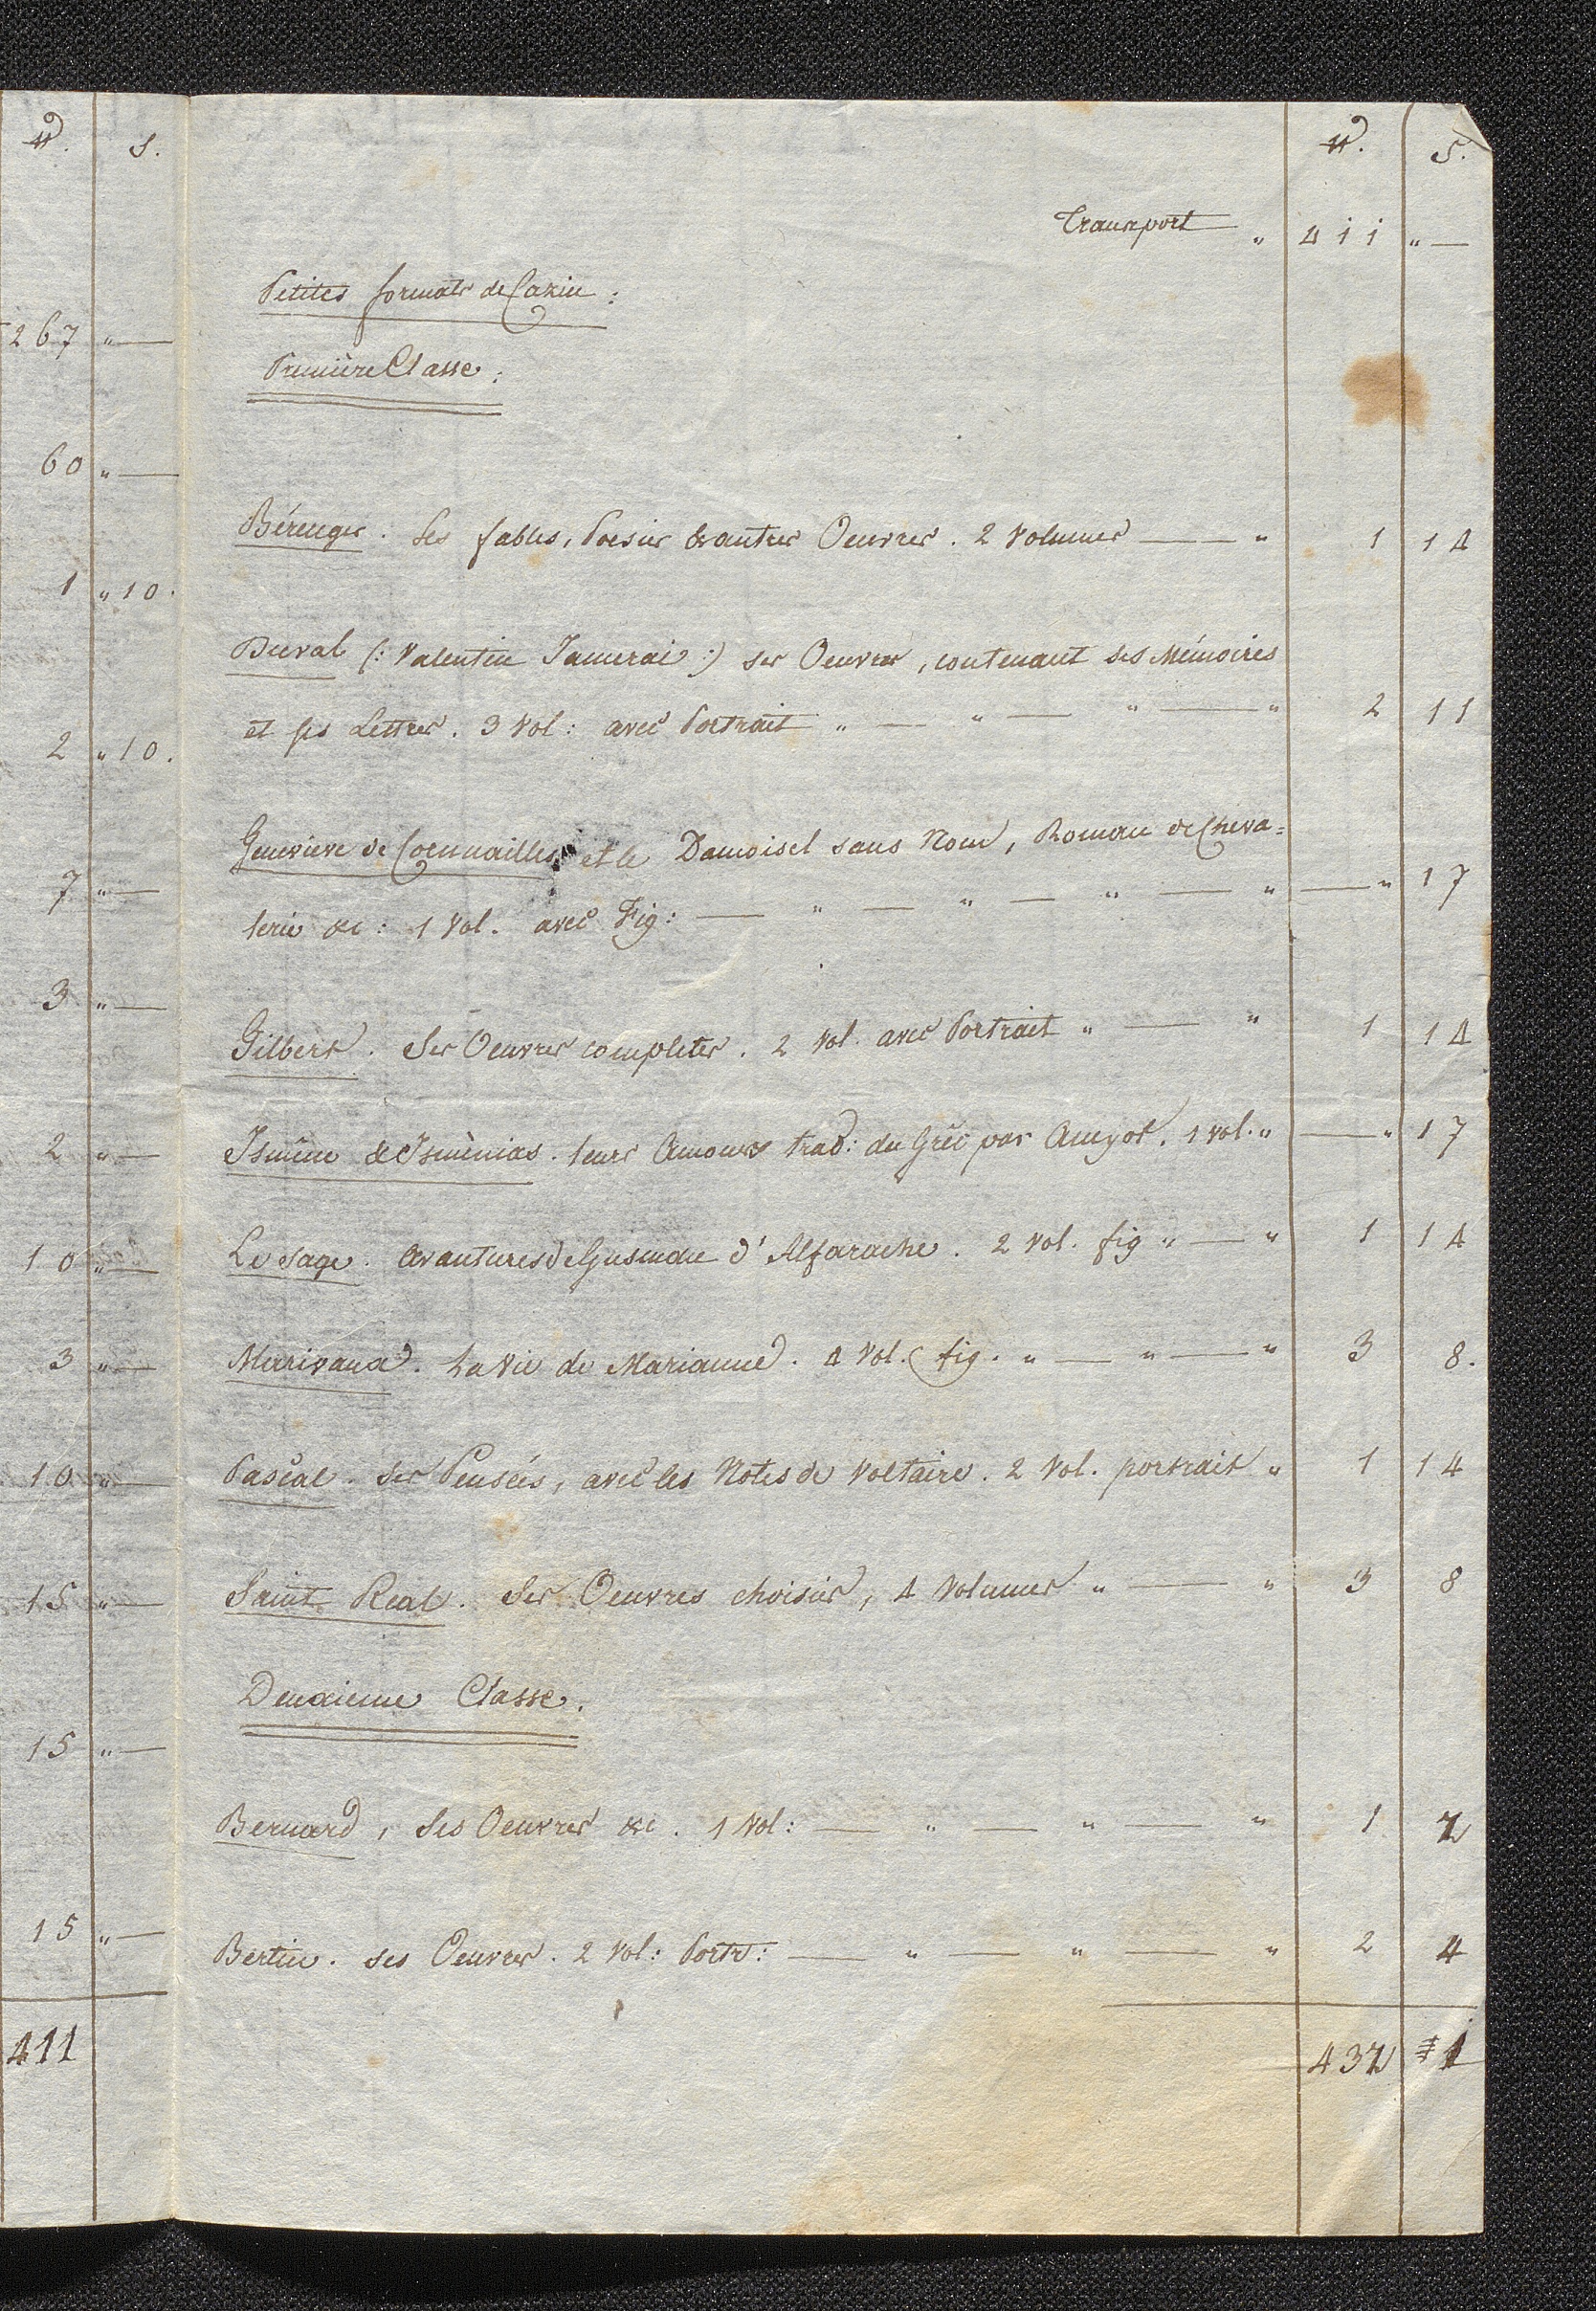 ₶. s.
267 " —
60 " —
1 " 10.
2 " 10.
7 " —
3 " —
2 " —
10 " —
3 " —
10 " —
15 " —
15 " —
15 " —
411
₶. s.
Transport " 411 " —
Petites formats de Cazin :
Première Classe :
Bérenger. Ses fables, Poesies & autres Oeuvres. 2 Volumes — — " 1 14
Duval (: Valentin Jamerai :) ses Oeuvres, contenant ses Mémoires
et ses Lettres. 3 Vol: avec Portrait " — " — " — " 2 11
Genevieve de Cornuailles et le Damoisel sans Nom, Roman de Cheva=
lerie &c: 1 Vol. avec Fig: — " — " — " — " — " 17
Gilbert. Ses Oeuvres completes. 2 Vol. avec Portrait " — " 1 14
Ismène & Isménias. leurs Amours trad: du Gréc par Amyot. 1 vol. " — " 17
Le Sage. Avantures de Gusman d'Alfarache. 2 vol. fig " — " 1 14
Marivaux. La Vie de Marianne. 4 Vol. fig. " — " — " 3 8.
Pascal. Ses Pensées, avec les Notes de Voltaire. 2 Vol. portrait " 1 14
Saint Real. Ses Oeuvres choisies, 4 Volumes " — " 3 8
Deuxieme Classe.
Bernard, Ses Oeuvres &c. 1 Vol: — " — " — " 1 2
Bertin. ses Oeuvres. 2 Vol: Portr: — " — " — " 2 4
432 1